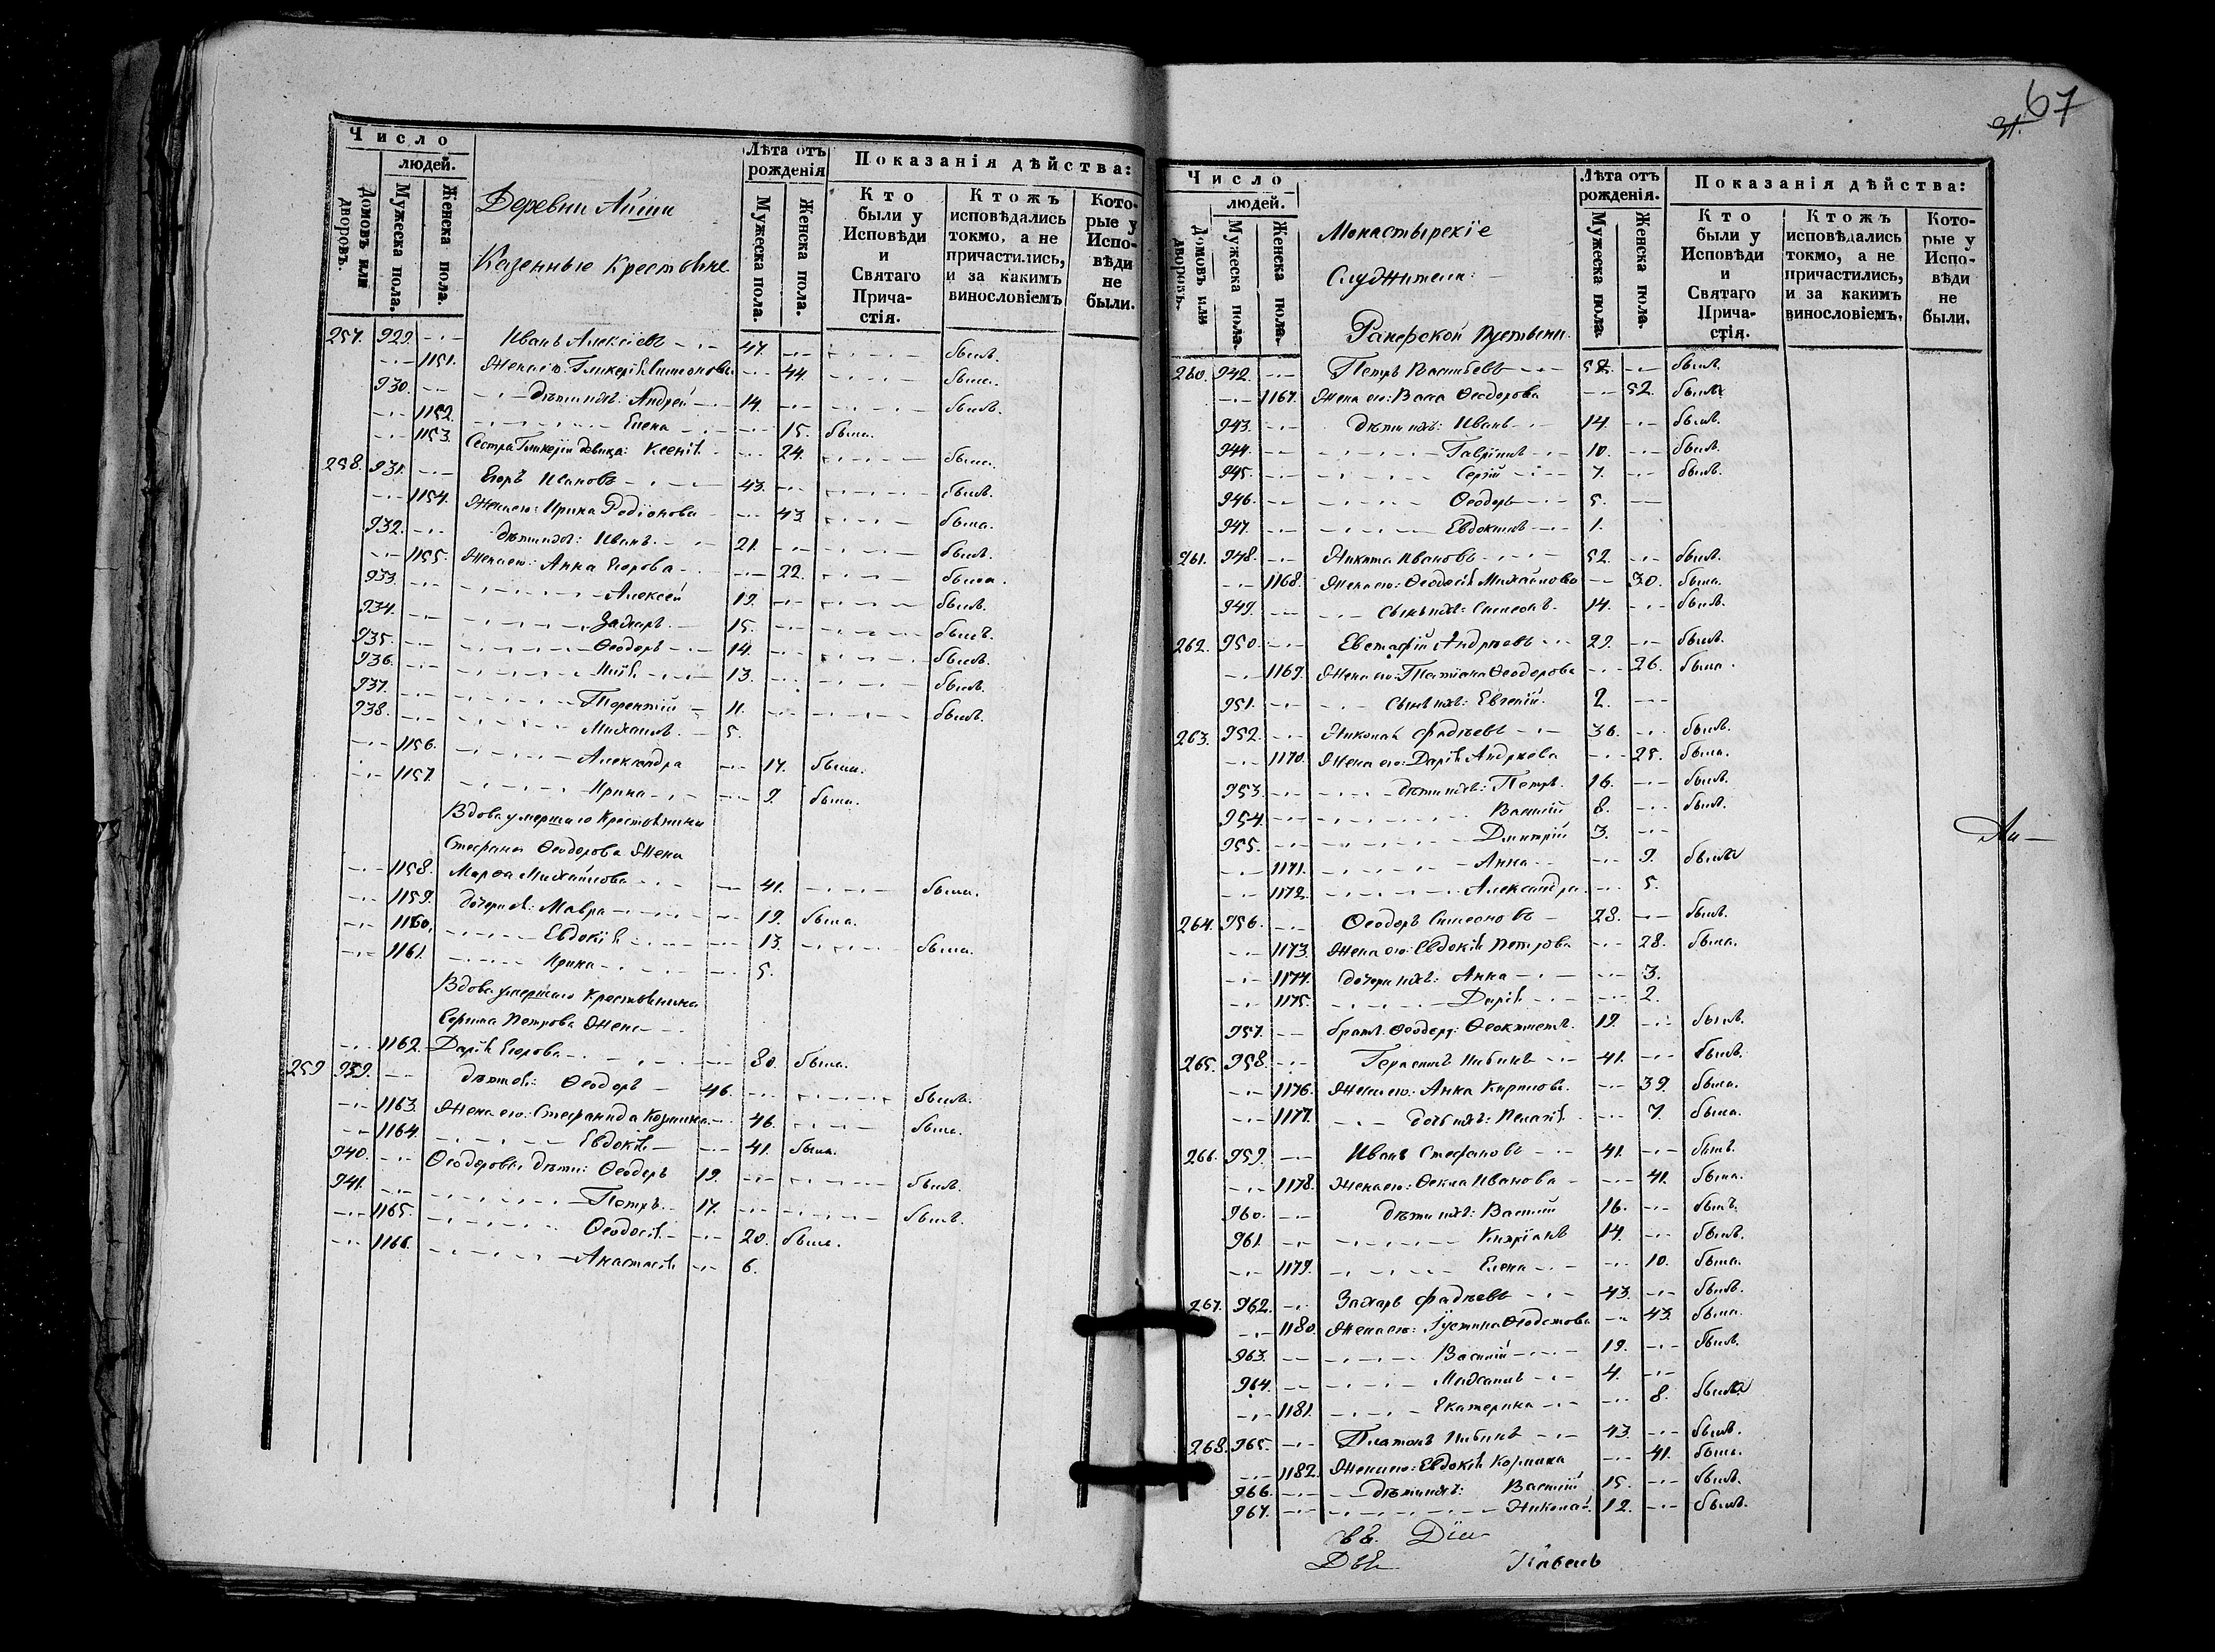 67
31.
Число
людей.
Домовъ или дворовъ.
Мужеска пола.
Женска пола.
Деревни Айши
Казенные Крестьяне
Лѣта отъ рожденія
Мужеска пола.
Женска пола.
Показанія дѣйства:
Кто были у Исповѣди и Святаго Причастія.
Ктожъ исповѣдались токмо, а не причастились, и за какимъ винословіемъ
Которые у Исповѣди не были.
257. 929. Иванъ Алексѣевъ 47. былъ.
1151. Жена его: Гликерія Симонова 44. была.
930. Дѣти ихъ: Андрей 14. былъ.
1152. Елена 15. была.
1153. Сестра Гликеріи девица: Ксенія 24. была.
258. 931. Егоръ Ивановъ 43. былъ.
1154. Жена его: Ирина Родіонова 43. была.
932. Дѣти ихъ: Иванъ 21. былъ.
1155. Жена его: Анна Егорова 22. была.
933. Алексѣй 19. былъ.
934. Захаръ 15. былъ.
935. Ѳеодоръ 14. былъ.
936. Илія 13. былъ.
937. Терентій 11. былъ.
938. Михаилъ 5.
1156. Александра 17. была.
1157. Ирина 9. была.
Вдова умершаго Крестьянина
Стефана Ѳеодорова Жена
1158. Марѳа Михайлова 41. была.
1159. дочери ея: Мавра 19. была.
1160. Евдокія 13. была.
1161. Ирина 5.
Вдова умершаго Крестьянина
Петрова Жена
1162. Дарія Егорова 80. была.
259 939. дѣти ея: Ѳеодоръ 46. былъ.
1163. Жена его: Стефанида Козмина 46. была.
1164. Евдокія 41. была.
940. Ѳеодоровы дѣти: Ѳеодоръ 19. былъ.
941. Петръ 17. былъ.
1165. Ѳеодосія 20. была.
1166. Анастасія 6.
Число
людей.
Домовъ или дворовъ.
Мужеска пола.
Женска пола.
Монастырскіе
Служители
Раифской Пустыни
Лѣта отъ рожденія.
Мужеска пола.
Женска пола.
Показанія дѣйства:
Кто были у Исповѣди и Святаго Причастія.
Ктожъ исповѣдались токмо, а не причастились, и за какимъ винословіемъ.
Которые у Исповѣди не были.
260. 942. Петръ Васильевъ былъ.
1167. Жена его: Васса Ѳеодорова 52. была
943. Дѣти ихъ: Иванъ 14. былъ.
944. Гавріилъ 10. былъ.
945. Сергій 7. былъ.
946. Ѳеодоръ 5.
947. Евдокимъ 1.
261. 948. Никита Ивановъ 52. былъ.
1168. Жена его: Ѳеодосія Михайлова 30. была.
949. Сынъ ихъ: Симеонъ 14. былъ.
262. 950. Евстафій Андреевъ 29. былъ.
1169. Жена его: Татіана Ѳеодорова 26. была.
951. Сынъ ихъ: Евгеній. 2.
263. 952. Николай Фадѣевъ 36. былъ.
1170. Жена его: Дарія Андреева была.
953. дѣти ихъ: Петръ 16. былъ.
954. Василій 8. былъ.
955. Дмитрій 3.
1171. Анна 9. была
1172. Александра 5.
264. 956. Ѳеодоръ Симеоновъ 28. былъ.
1173. Жена его: Евдокія Петрова 28. была.
1174. дочери ихъ: Анна 3.
1175. Дарія 2.
957. братъ Ѳеодору: Ѳеоктистъ 19. былъ.
265. 958. Герасимъ 41. былъ.
1176. Жена его: Анна Кирилова 39. была.
1177. дочь ихъ: Пелагія 7. была.
266. 959. Иванъ Стефановъ 41. былъ.
1178. Жена его: Ѳекла Иванова 41. была.
960. дѣти ихъ: Василій 16. былъ.
961. Кипріанъ 14. былъ.
1179. Елена 10. была.
267. 962. Захаръ Фадѣевъ 43. былъ.
1180. Жена его: Іустина 43. была.
963. Василій 19. былъ.
964. Михаилъ 4.
1181. Екатерина 8. была
268. 965. Платонъ 43. былъ.
1182. Жена его: Евдокія Козмина 41. была.
966. дѣти ихъ: Василій 15. былъ.
967. Николай 12. былъ.